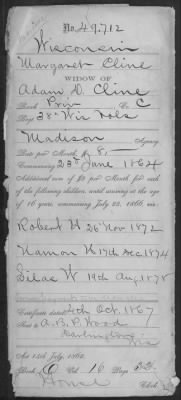 No. 49,712
Wisconsin
Margaret Cline
WIDOW OF
Adam D. Cline
Rank Priv Co. C
Regt 38" Wis Vols
Madison Agency
Rate per Month, $ 8,—
Commencing 28" June 1864
Additional sum of $2 per month for each
of the following children, until arriving at the age
of 16 years, commencing July 25, 1866, viz:
Robert H 26" Nov 1872
Harmon H 17th Dec 1874
Silas W 19th Aug 1878
Certificate dated 4th Oct. 1867
Sent to A. B. P. Wood
Darlington
Wis
Act 14th July, 1862.
Book O Vol. 16 Page 32
Clerk.